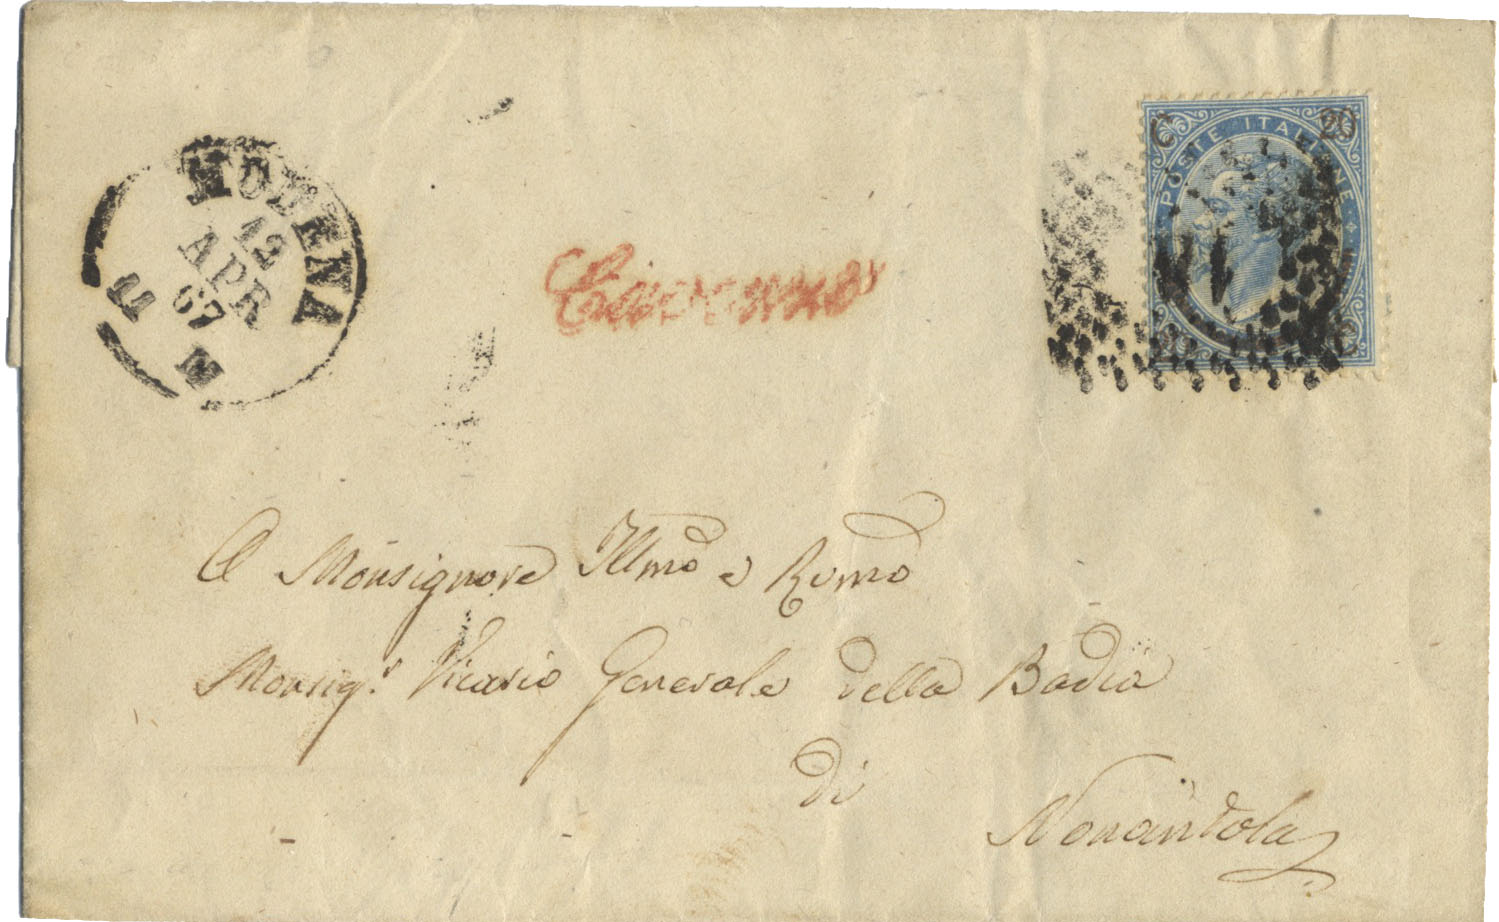 MODENA
12
APR
67
11 M
C 20
POSTE ITALIANE
20 C
A Monsignore Illmo e Rvmo
Monsigr. Vicario Generale della Badia
di
Nonantola